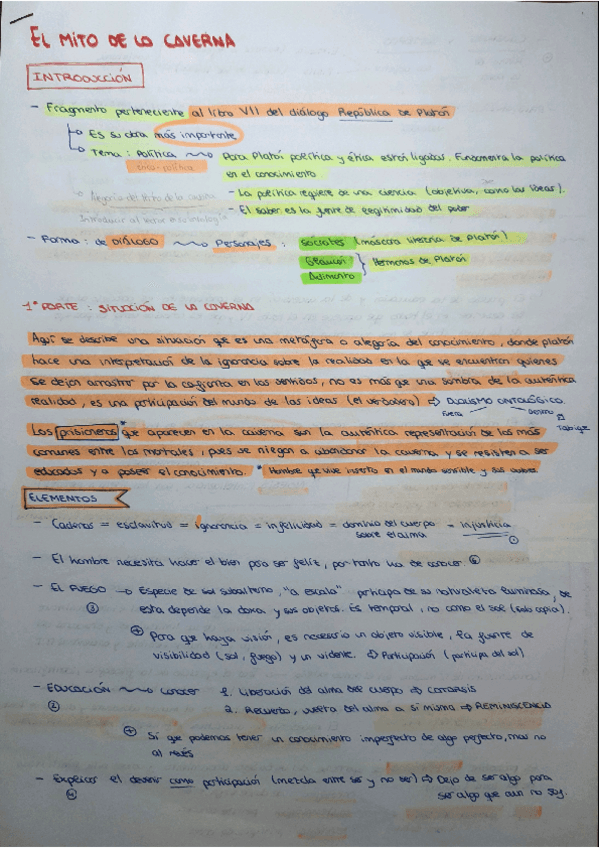 EL MITO DE LA CAVERNA
INTRODUCCIÓN
- Fragmento perteneciente al libro VII del diálogo República de Platón
↳ Es su obra más importante
↳ Tema: Política ~ Para Platón política y ética están ligadas. Fundamenta la política
en el conocimiento
- La política requiere de una ciencia (objetiva, como las ideas).
- El saber es la fuente de legitimidad del poder
- Forma: de DIÁLOGO ~ Personajes: Sócrates (máscara literaria de Platón)
Glaucón } Hermanos de Platón
Adimanto
1ª PARTE: SITUACIÓN DE LA CAVERNA
Aquí se describe una situación que es una metáfora o alegoría del conocimiento, donde platón
hace una interpretación de la ignorancia sobre la realidad en la que se encuentran quienes
se dejan arrastrar por la confianza en los sentidos, no es más que una sombra de la auténtica
realidad, es una participación del mundo de las ideas (el verdadero) ⇨ DUALISMO ONTOLÓGICO
Fuera Dentro
Los prisioneros * que aparecen en la caverna son la auténtica representación de los más
comunes entre los mortales, pues se niegan a abandonar la caverna y se resisten a ser
educados y a poseer el conocimiento. * Hombre que vive inserto en el mundo sensible y sus
ELEMENTOS
- Cadenas = esclavitud = ignorancia = infelicidad = dominio del cuerpo = injusticia
sobre el alma ①
- El hombre necesita hacer el bien para ser feliz, por tanto ha de conocer. ⑥
- EL FUEGO → Especie de sol subalterno, "a escala" participa de su naturaleza luminosa, de
③ esta depende la doxa y sus objetos. Es temporal, no como el sol (solo copia).
⊕ Para que haya visión, es necesario un objeto visible, la fuente de
visibilidad (sol, fuego) y un vidente. ⇨ Participación (participa del sol)
- EDUCACIÓN ~ conocer 1. Liberación del alma del cuerpo ⇨ CATARSIS
② 2. Recuerdo, vuelta del alma a sí misma ⇨ REMINISCENCIA
⊕ Sí que podemos tener un conocimiento imperfecto de algo perfecto, mas no
al revés
- Explicar el devenir como participación (mezcla entre ser y no ser) ⇨ Dejo de ser algo para
④ ser algo que aun no soy.